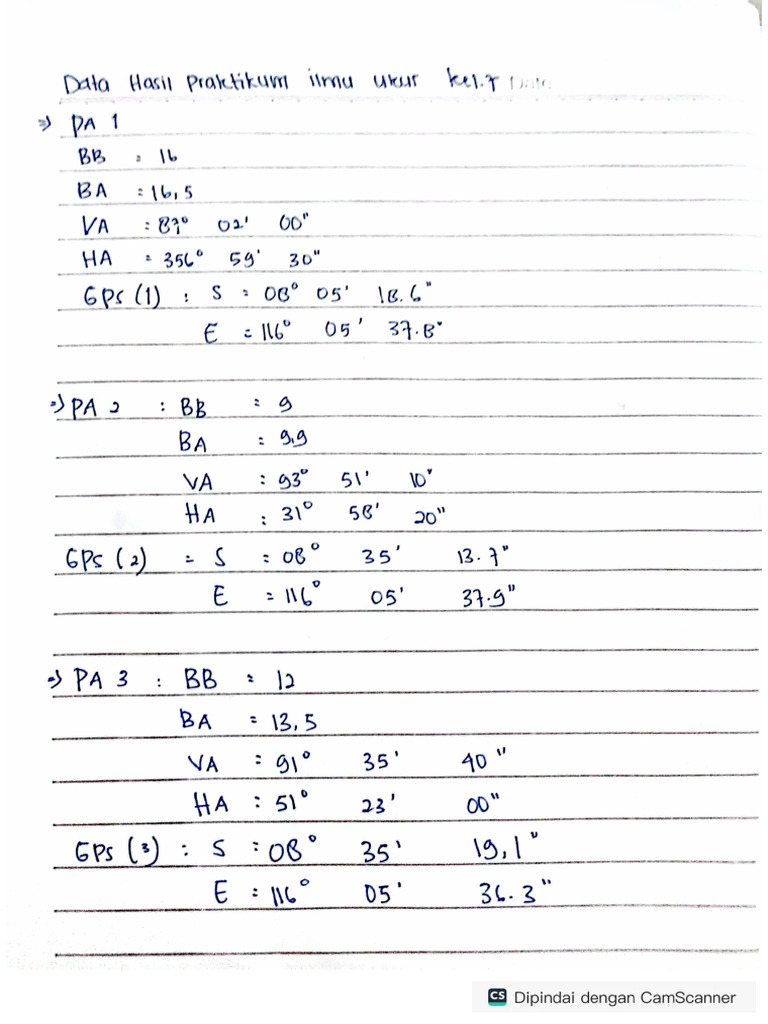 Data Hasil Praktikum ilmu ukur kel.7 Date
=> PA 1
BB : 16
BA : 16,5
VA : 87° 02' 00"
HA : 356° 59' 30"
GPS (1) : S = 08° 05' 18.6"
E = 116° 05' 37.8"
=> PA 2 : BB : 9
BA : 9,9
VA : 93° 51' 10"
HA : 31° 58' 20"
GPS (2) = S : 08° 35' 13.7"
E = 116° 05' 37.9"
=> PA 3 : BB = 12
BA = 13,5
VA : 91° 35' 40"
HA : 51° 23' 00"
GPS (3) : S : 08° 35' 19,1"
E : 116° 05' 36.3"
CS Dipindai dengan CamScanner